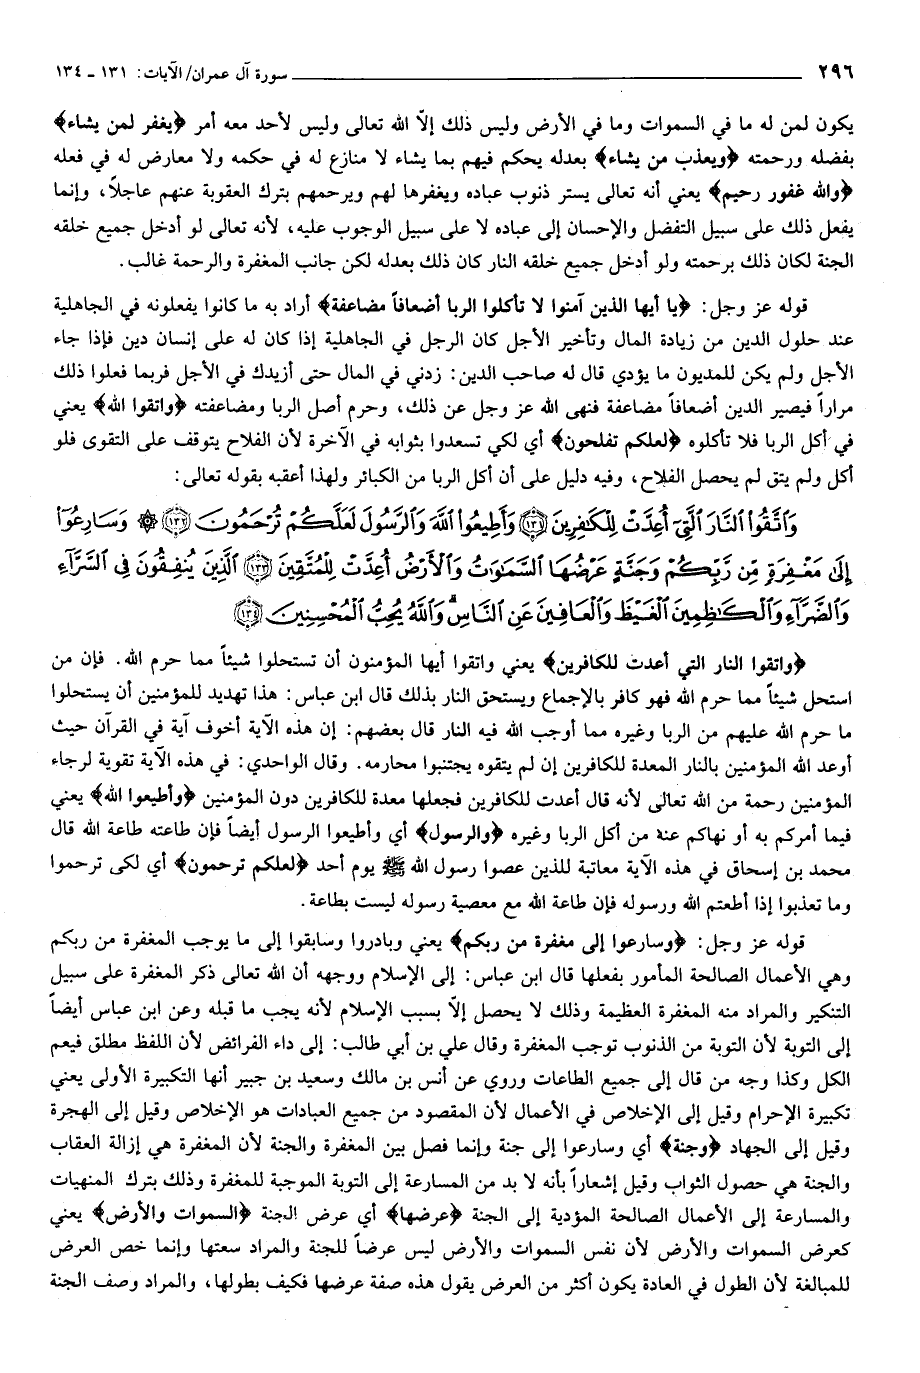 ٢٩٦ سورة آل عمران/ الآيات: ١٣١ ـ ١٣٤
يكون لمن له ما في السموات وما في الأرض وليس ذلك إلاّ الله تعالى وليس لأحد معه أمر ﴿يغفر لمن يشاء﴾
بفضله ورحمته ﴿ويعذب من يشاء﴾ بعدله يحكم فيهم بما يشاء لا منازع له في حكمه ولا معارض له في فعله
﴿والله غفور رحيم﴾ يعني أنه تعالى يستر ذنوب عباده ويغفرها لهم ويرحمهم بترك العقوبة عنهم عاجلاً، وإنما
يفعل ذلك على سبيل التفضل والإحسان إلى عباده لا على سبيل الوجوب عليه، لأنه تعالى لو أدخل جميع خلقه
الجنة لكان ذلك برحمته ولو أدخل جميع خلقه النار كان ذلك بعدله لكن جانب المغفرة والرحمة غالب.
قوله عز وجل: ﴿يا أيها الذين آمنوا لا تأكلوا الربا أضعافاً مضاعفة﴾ أراد به ما كانوا يفعلونه في الجاهلية
عند حلول الدين من زيادة المال وتأخير الأجل كان الرجل في الجاهلية إذا كان له على إنسان دين فإذا جاء
الأجل ولم يكن للمديون ما يؤدي قال له صاحب الدين: زدني في المال حتى أزيدك في الأجل فربما فعلوا ذلك
مراراً فيصير الدين أضعافاً مضاعفة فنهى الله عز وجل عن ذلك، وحرم أصل الربا ومضاعفته ﴿واتقوا الله﴾ يعني
في أكل الربا فلا تأكلوه ﴿لعلكم تفلحون﴾ أي لكي تسعدوا بثوابه في الآخرة لأن الفلاح يتوقف على التقوى فلو
أكل ولم يتق لم يحصل الفلاح، وفيه دليل على أن أكل الربا من الكبائر ولهذا أعقبه بقوله تعالى:
وَاتَّقُوا النَّارَ الَّتِي أُعِدَّتْ لِلْكَافِرِينَ ١٣١ وَأَطِيعُوا اللَّهَ وَالرَّسُولَ لَعَلَّكُمْ تُرْحَمُونَ ١٣٢ ۞ وَسَارِعُوا
إِلَى مَغْفِرَةٍ مِّن رَّبِّكُمْ وَجَنَّةٍ عَرْضُهَا السَّمَاوَاتُ وَالْأَرْضُ أُعِدَّتْ لِلْمُتَّقِينَ ١٣٣ الَّذِينَ يُنفِقُونَ فِي السَّرَّاءِ
وَالضَّرَّاءِ وَالْكَاظِمِينَ الْغَيْظَ وَالْعَافِينَ عَنِ النَّاسِ وَاللَّهُ يُحِبُّ الْمُحْسِنِينَ ١٣٤
﴿واتقوا النار التي أعدت للكافرين﴾ يعني واتقوا أيها المؤمنون أن تستحلوا شيئاً مما حرم الله. فإن من
استحل شيئاً مما حرم الله فهو كافر بالإجماع ويستحق النار بذلك قال ابن عباس: هذا تهديد للمؤمنين أن يستحلوا
ما حرم الله عليهم من الربا وغيره مما أوجب الله فيه النار قال بعضهم: إن هذه الآية أخوف آية في القرآن حيث
أوعد الله المؤمنين بالنار المعدة للكافرين إن لم يتقوه يجتنبوا محارمه. وقال الواحدي: في هذه الآية تقوية لرجاء
المؤمنين رحمة من الله تعالى لأنه قال أعدت للكافرين فجعلها معدة للكافرين دون المؤمنين ﴿وأطيعوا الله﴾ يعني
فيما أمركم به أو نهاكم عنه من أكل الربا وغيره ﴿والرسول﴾ أي وأطيعوا الرسول أيضاً فإن طاعته طاعة الله قال
محمد بن إسحاق في هذه الآية معاتبة للذين عصوا رسول الله ﷺ يوم أحد ﴿لعلكم ترحمون﴾ أي لكي ترحموا
وما تعذبوا إذا أطعتم الله ورسوله فإن طاعة الله مع معصية رسوله ليست بطاعة.
قوله عز وجل: ﴿وسارعوا إلى مغفرة من ربكم﴾ يعني وبادروا وسابقوا إلى ما يوجب المغفرة من ربكم
وهي الأعمال الصالحة المأمور بفعلها قال ابن عباس: إلى الإسلام ووجهه أن الله تعالى ذكر المغفرة على سبيل
التنكير والمراد منه المغفرة العظيمة وذلك لا يحصل إلاّ بسبب الإسلام لأنه يجب ما قبله وعن ابن عباس أيضاً
إلى التوبة لأن التوبة من الذنوب توجب المغفرة وقال علي بن أبي طالب: إلى داء الفرائض لأن اللفظ مطلق فيعم
الكل وكذا وجه من قال إلى جميع الطاعات وروي عن أنس بن مالك وسعيد بن جبير أنها التكبيرة الأولى يعني
تكبيرة الإحرام وقيل إلى الإخلاص في الأعمال لأن المقصود من جميع العبادات هو الإخلاص وقيل إلى الهجرة
وقيل إلى الجهاد ﴿وجنة﴾ أي وسارعوا إلى جنة وإنما فصل بين المغفرة والجنة لأن المغفرة هي إزالة العقاب
والجنة هي حصول الثواب وقيل إشعاراً بأنه لا بد من المسارعة إلى التوبة الموجبة للمغفرة وذلك بترك المنهيات
والمسارعة إلى الأعمال الصالحة المؤدية إلى الجنة ﴿عرضها﴾ أي عرض الجنة ﴿السموات والأرض﴾ يعني
كعرض السموات والأرض لأن نفس السموات والأرض ليس عرضاً للجنة والمراد سعتها وإنما خص العرض
للمبالغة لأن الطول في العادة يكون أكثر من العرض يقول هذه صفة عرضها فكيف بطولها، والمراد وصف الجنة